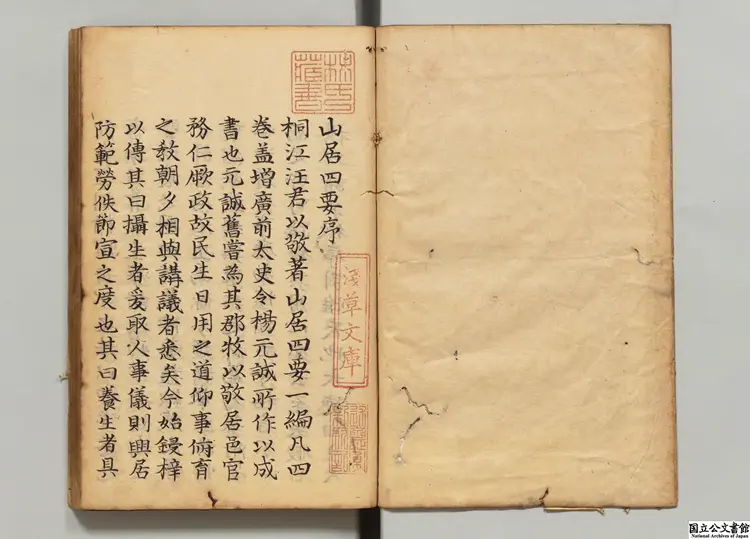 山居四要序
桐江汪君以敬著山居四要一編凡四
卷盖增廣前太史令楊元誠所作以成
書也元誠舊嘗為其郡牧以敬居邑官
務仁厥政故民生日用之道仰事俯育
之教朝夕相與講議者悉矣今始鋟梓
以傳其曰攝生者爰取人事儀則興居
防範勞佚節宣之度也其曰養生者具
林氏
藏書
淺草文庫
国立公文書館
National Archives of Japan